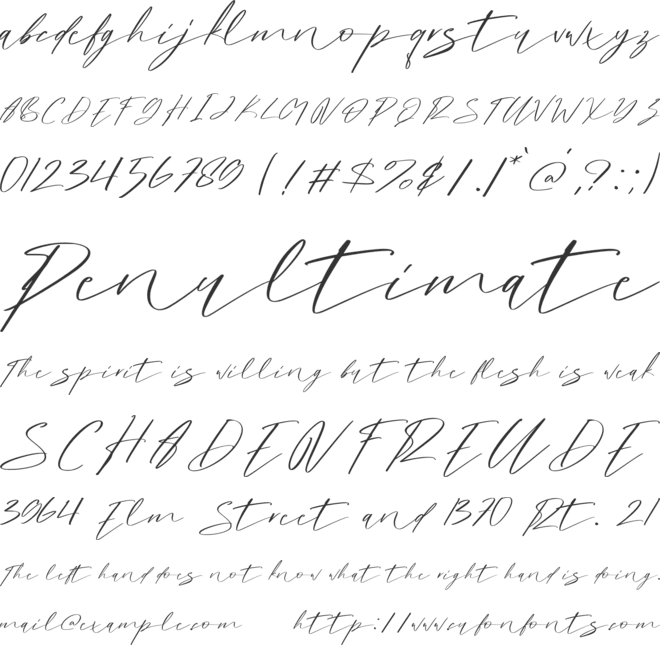 abcdefghijklmnopqrstuvwxyz
ABCDEFGHIJKLMNOPQRSTUVWXYZ
0123456789 ( ! # $ % & / . | * ` @ ' , ? : ; )
Penultimate
The spirit is willing but the flesh is weak
SCHADENFREUDE
3964 Elm Street and 1370 Rt. 21
The left hand does not know what the right hand is doing.
mail@example.com http://www.cufonfonts.com